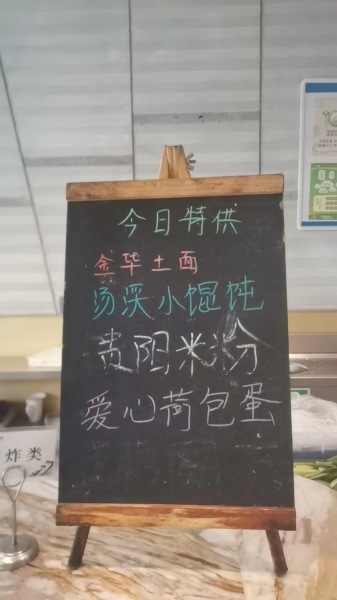 今日特供
金华土面
汤溪小馄饨
贵阳米粉
爱心荷包蛋
炸类